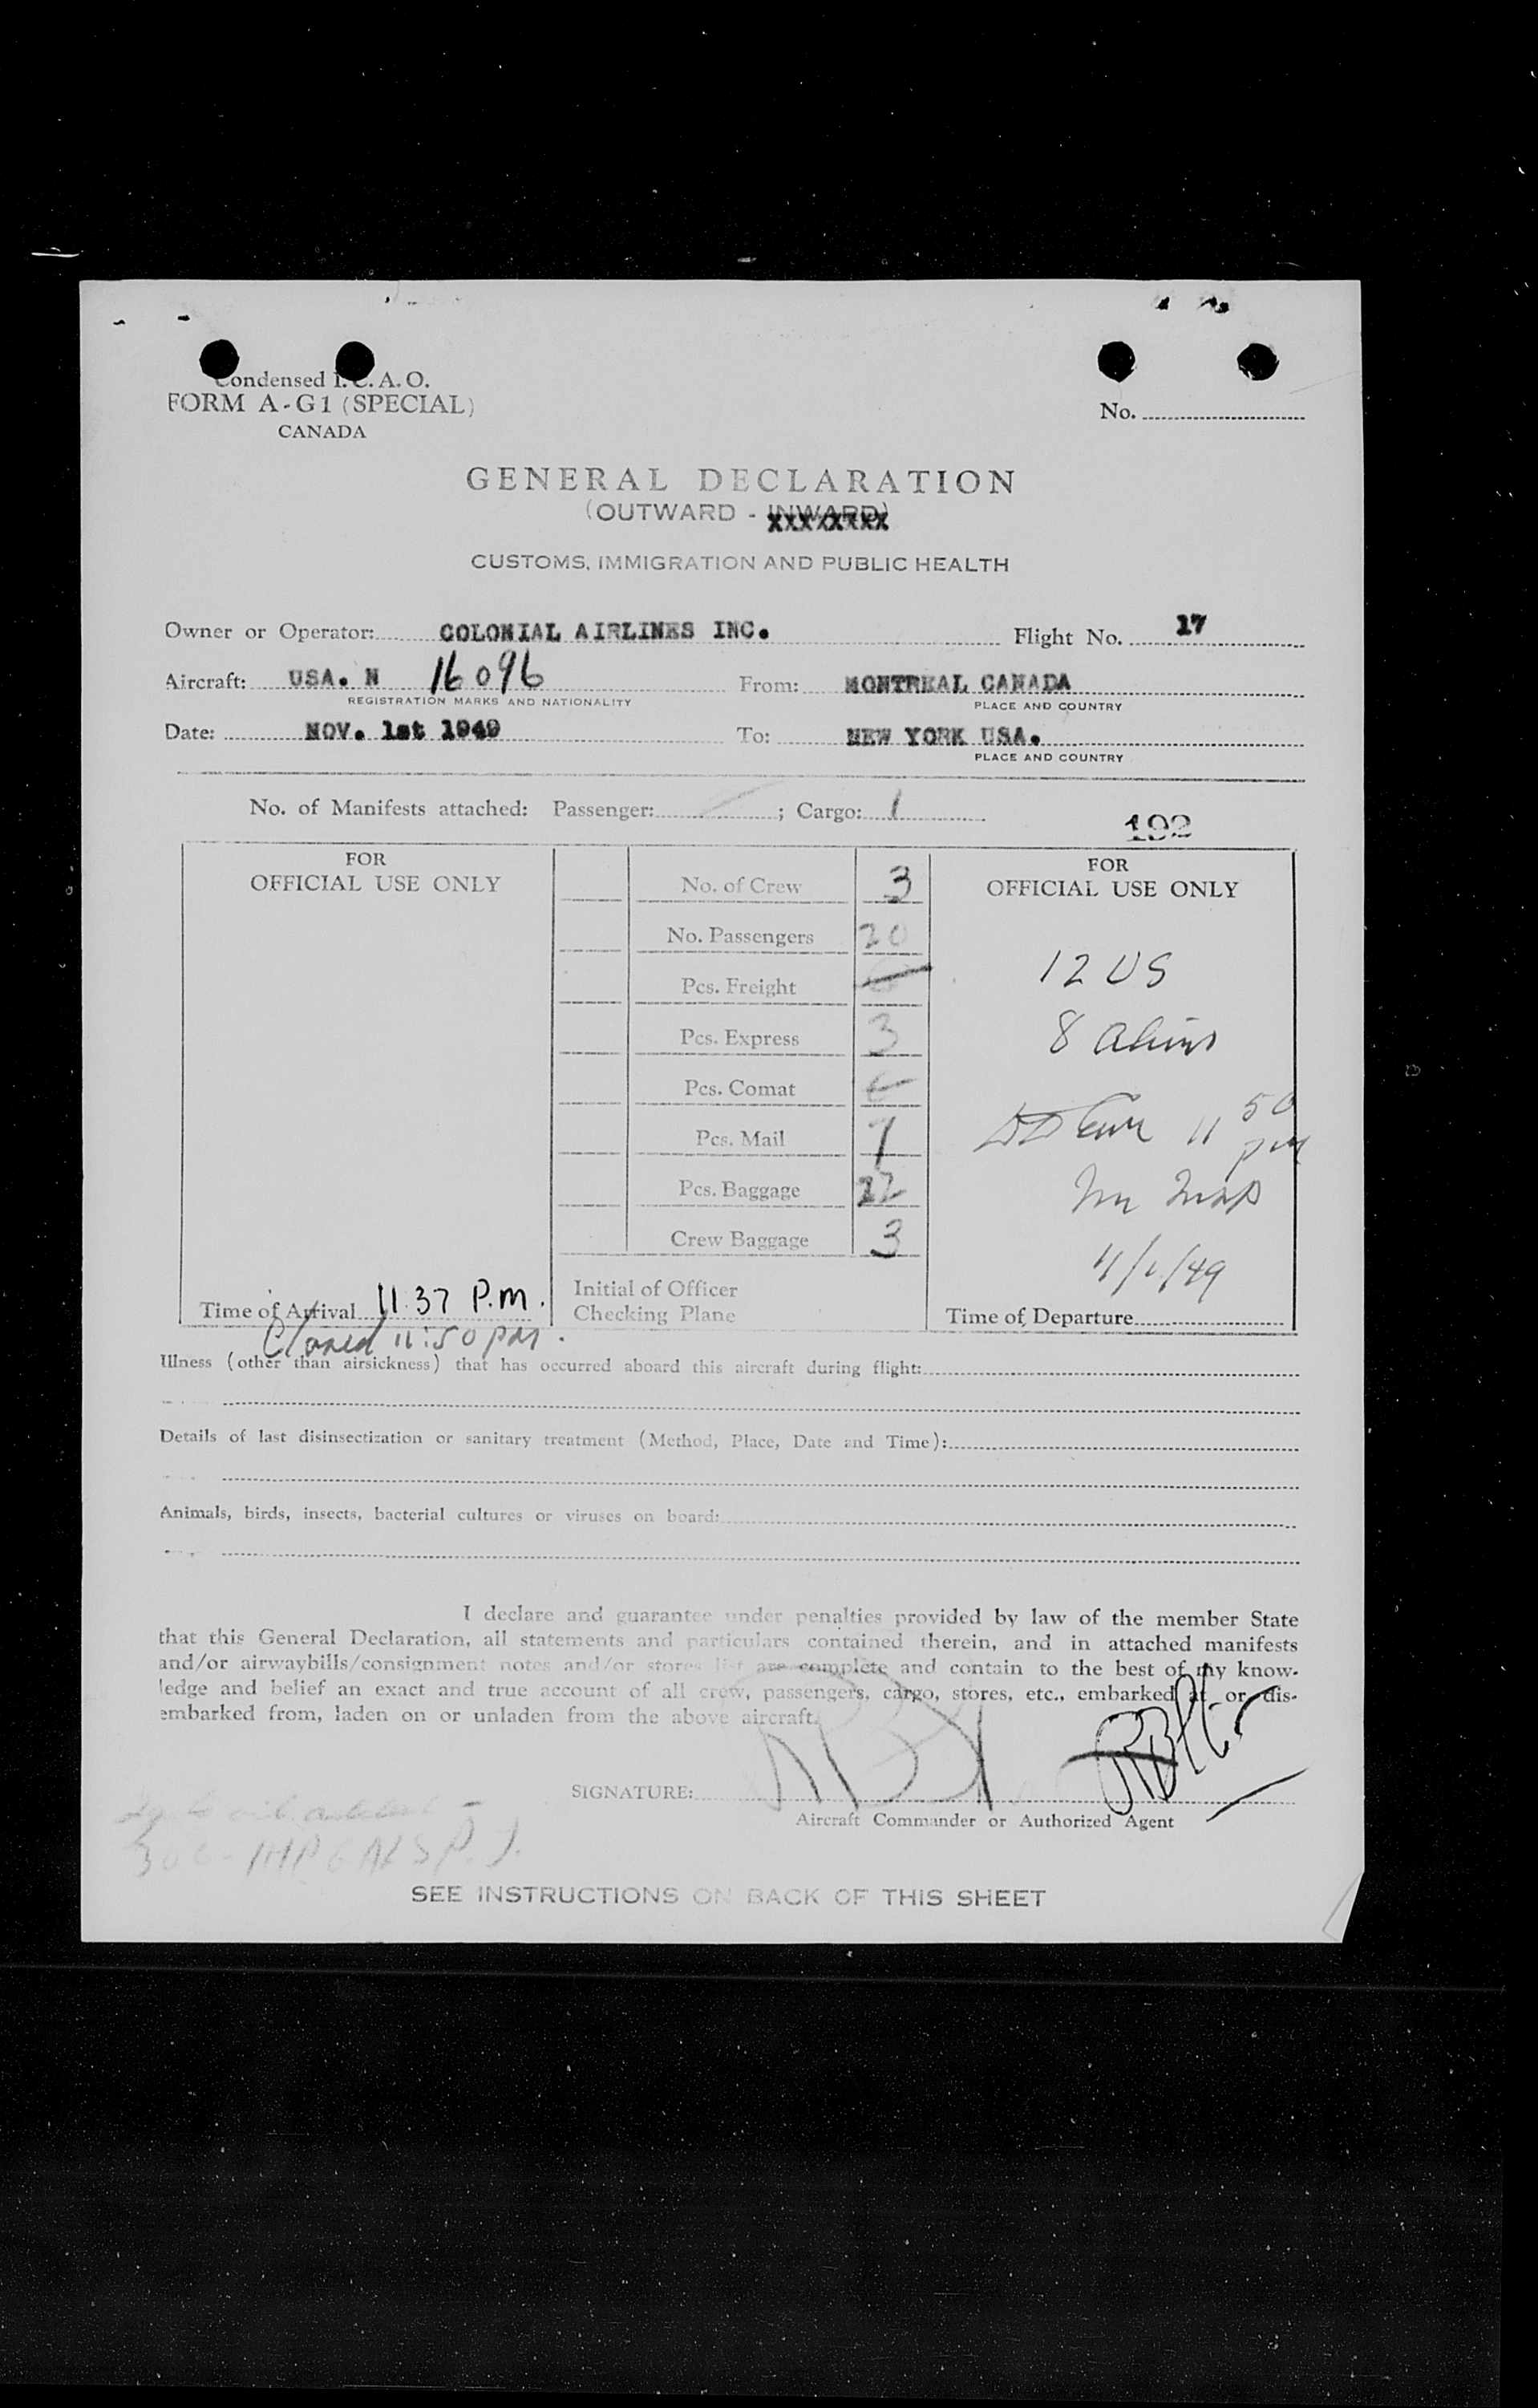 Condensed I.C.A.O.
FORM A-G1 (SPECIAL)
CANADA
No.
GENERAL DECLARATION
(OUTWARD - INWARD)
CUSTOMS, IMMIGRATION AND PUBLIC HEALTH
Owner or Operator: COLONIAL AIRLINES INC. Flight No. 17
Aircraft: USA. N 16096 From: MONTREAL CANADA
REGISTRATION MARKS AND NATIONALITY PLACE AND COUNTRY
Date: NOV. 1st 1949 To: NEW YORK USA.
PLACE AND COUNTRY
No. of Manifests attached: Passenger: ; Cargo: 1
192
FOR
OFFICIAL USE ONLY
No. of Crew 3
No. Passengers 20
Pcs. Freight
Pcs. Express 3
Pcs. Comat
Pcs. Mail 1
Pcs. Baggage 22
Crew Baggage 3
Initial of Officer
Checking Plane
FOR
OFFICIAL USE ONLY
12 US
8 aliens
11 50
pm
11/1/49
Time of Arrival 11.37 P.M.
Closed 11:50 pm.
Time of Departure
Illness (other than airsickness) that has occurred aboard this aircraft during flight:
Details of last disinsectization or sanitary treatment (Method, Place, Date and Time):
Animals, birds, insects, bacterial cultures or viruses on board:
I declare and guarantee under penalties provided by law of the member State
that this General Declaration, all statements and particulars contained therein, and in attached manifests
and/or airwaybills/consignment notes and/or stores list are complete and contain to the best of my know-
ledge and belief an exact and true account of all crew, passengers, cargo, stores, etc., embarked at or dis-
embarked from, laden on or unladen from the above aircraft.
SIGNATURE:
Aircraft Commander or Authorized Agent
SEE INSTRUCTIONS ON BACK OF THIS SHEET